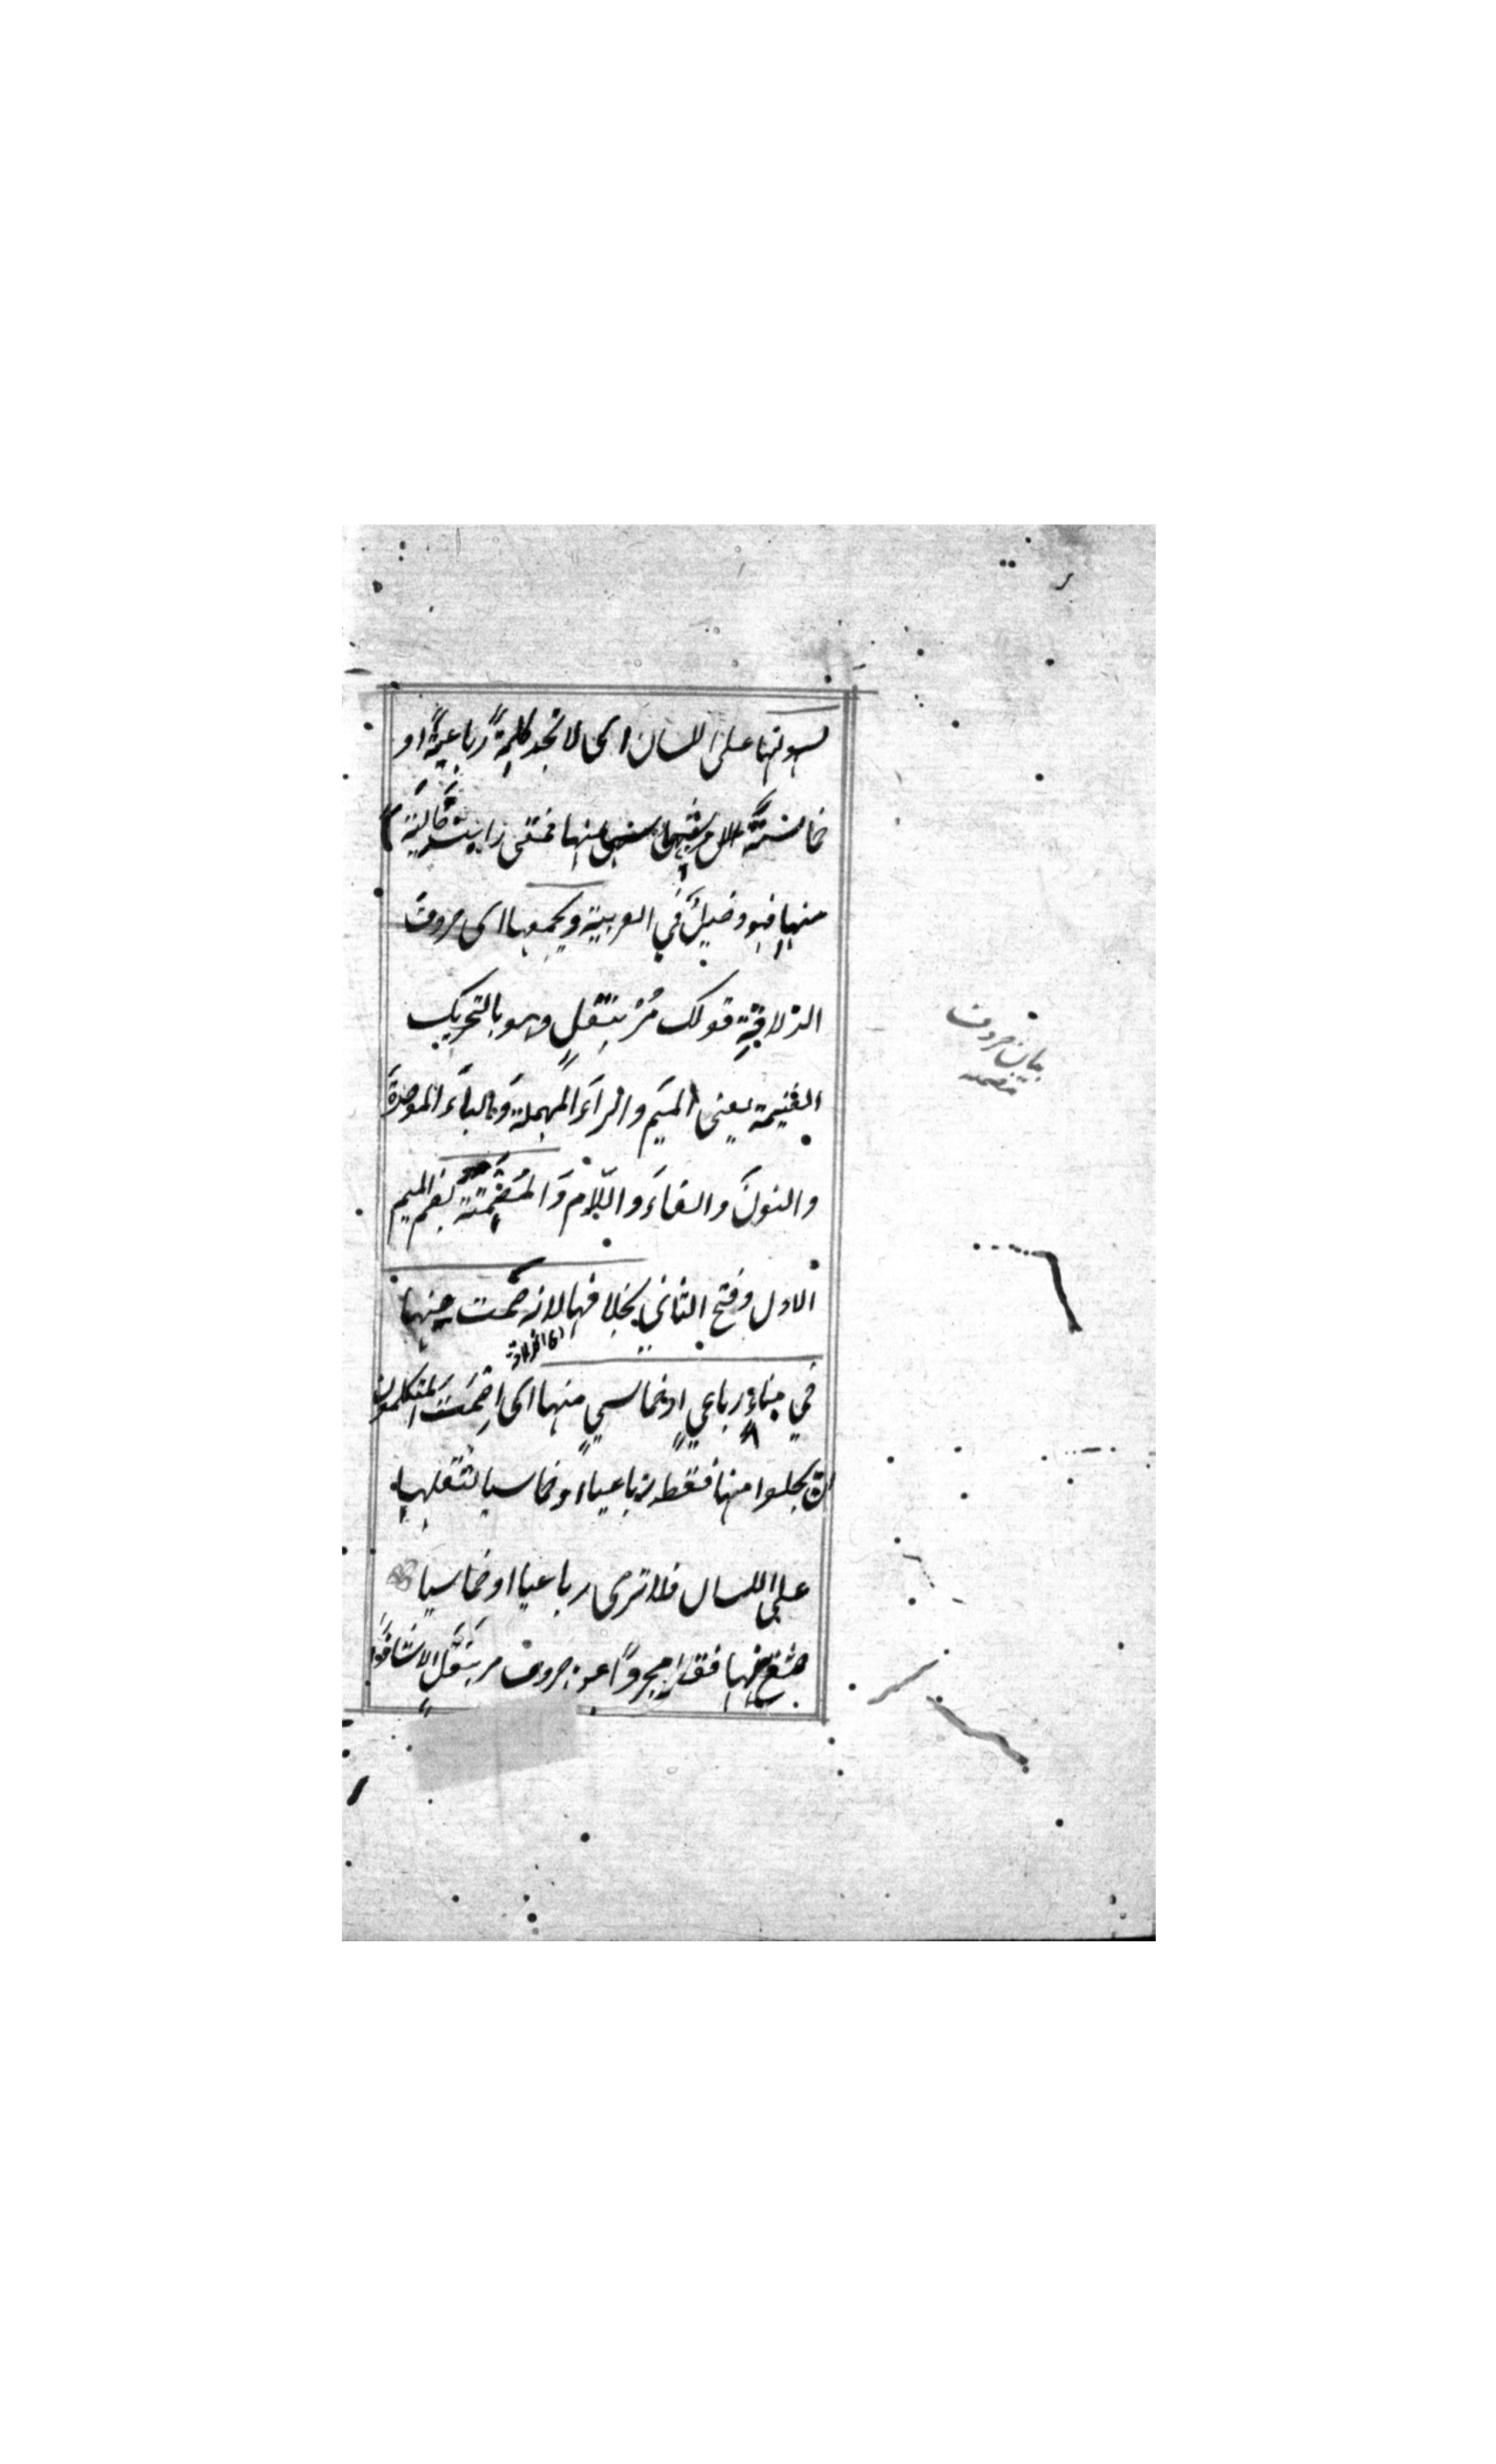 لسهولتها على اللسان اى لا تجد كلمةً رباعيةً او
خماسيةً الا وشيء منها فمتى رايت خاليةً
منها فهو دخيلٌ في العربية ويجمعها اى حروف
الذلاقةِ قولك مُرْ بنَفَلٍ وهو بالتحريك
الغنيمة يعنى الميم والراءَ المهملة والباءَ الموحدةَ
والنونَ والفاءَ واللّامَ وَالمُصْمَتَة بضم الميم
الاول وفتح الثاني بخلافها لانه صمت عنها
اى الذلاقة
في بناءٍ رباعيٍ او خماسيٍ منها اى اصمَتَ المتكلمون
ان يجعلوا منها فقط رباعيا او خماسيا لثقلها
على اللسان فلا ترى رباعيا او خماسيا
منها فقط مجردًا عن حروف مر بنفلٍ الا شاذا
بيان حروف
مصمته